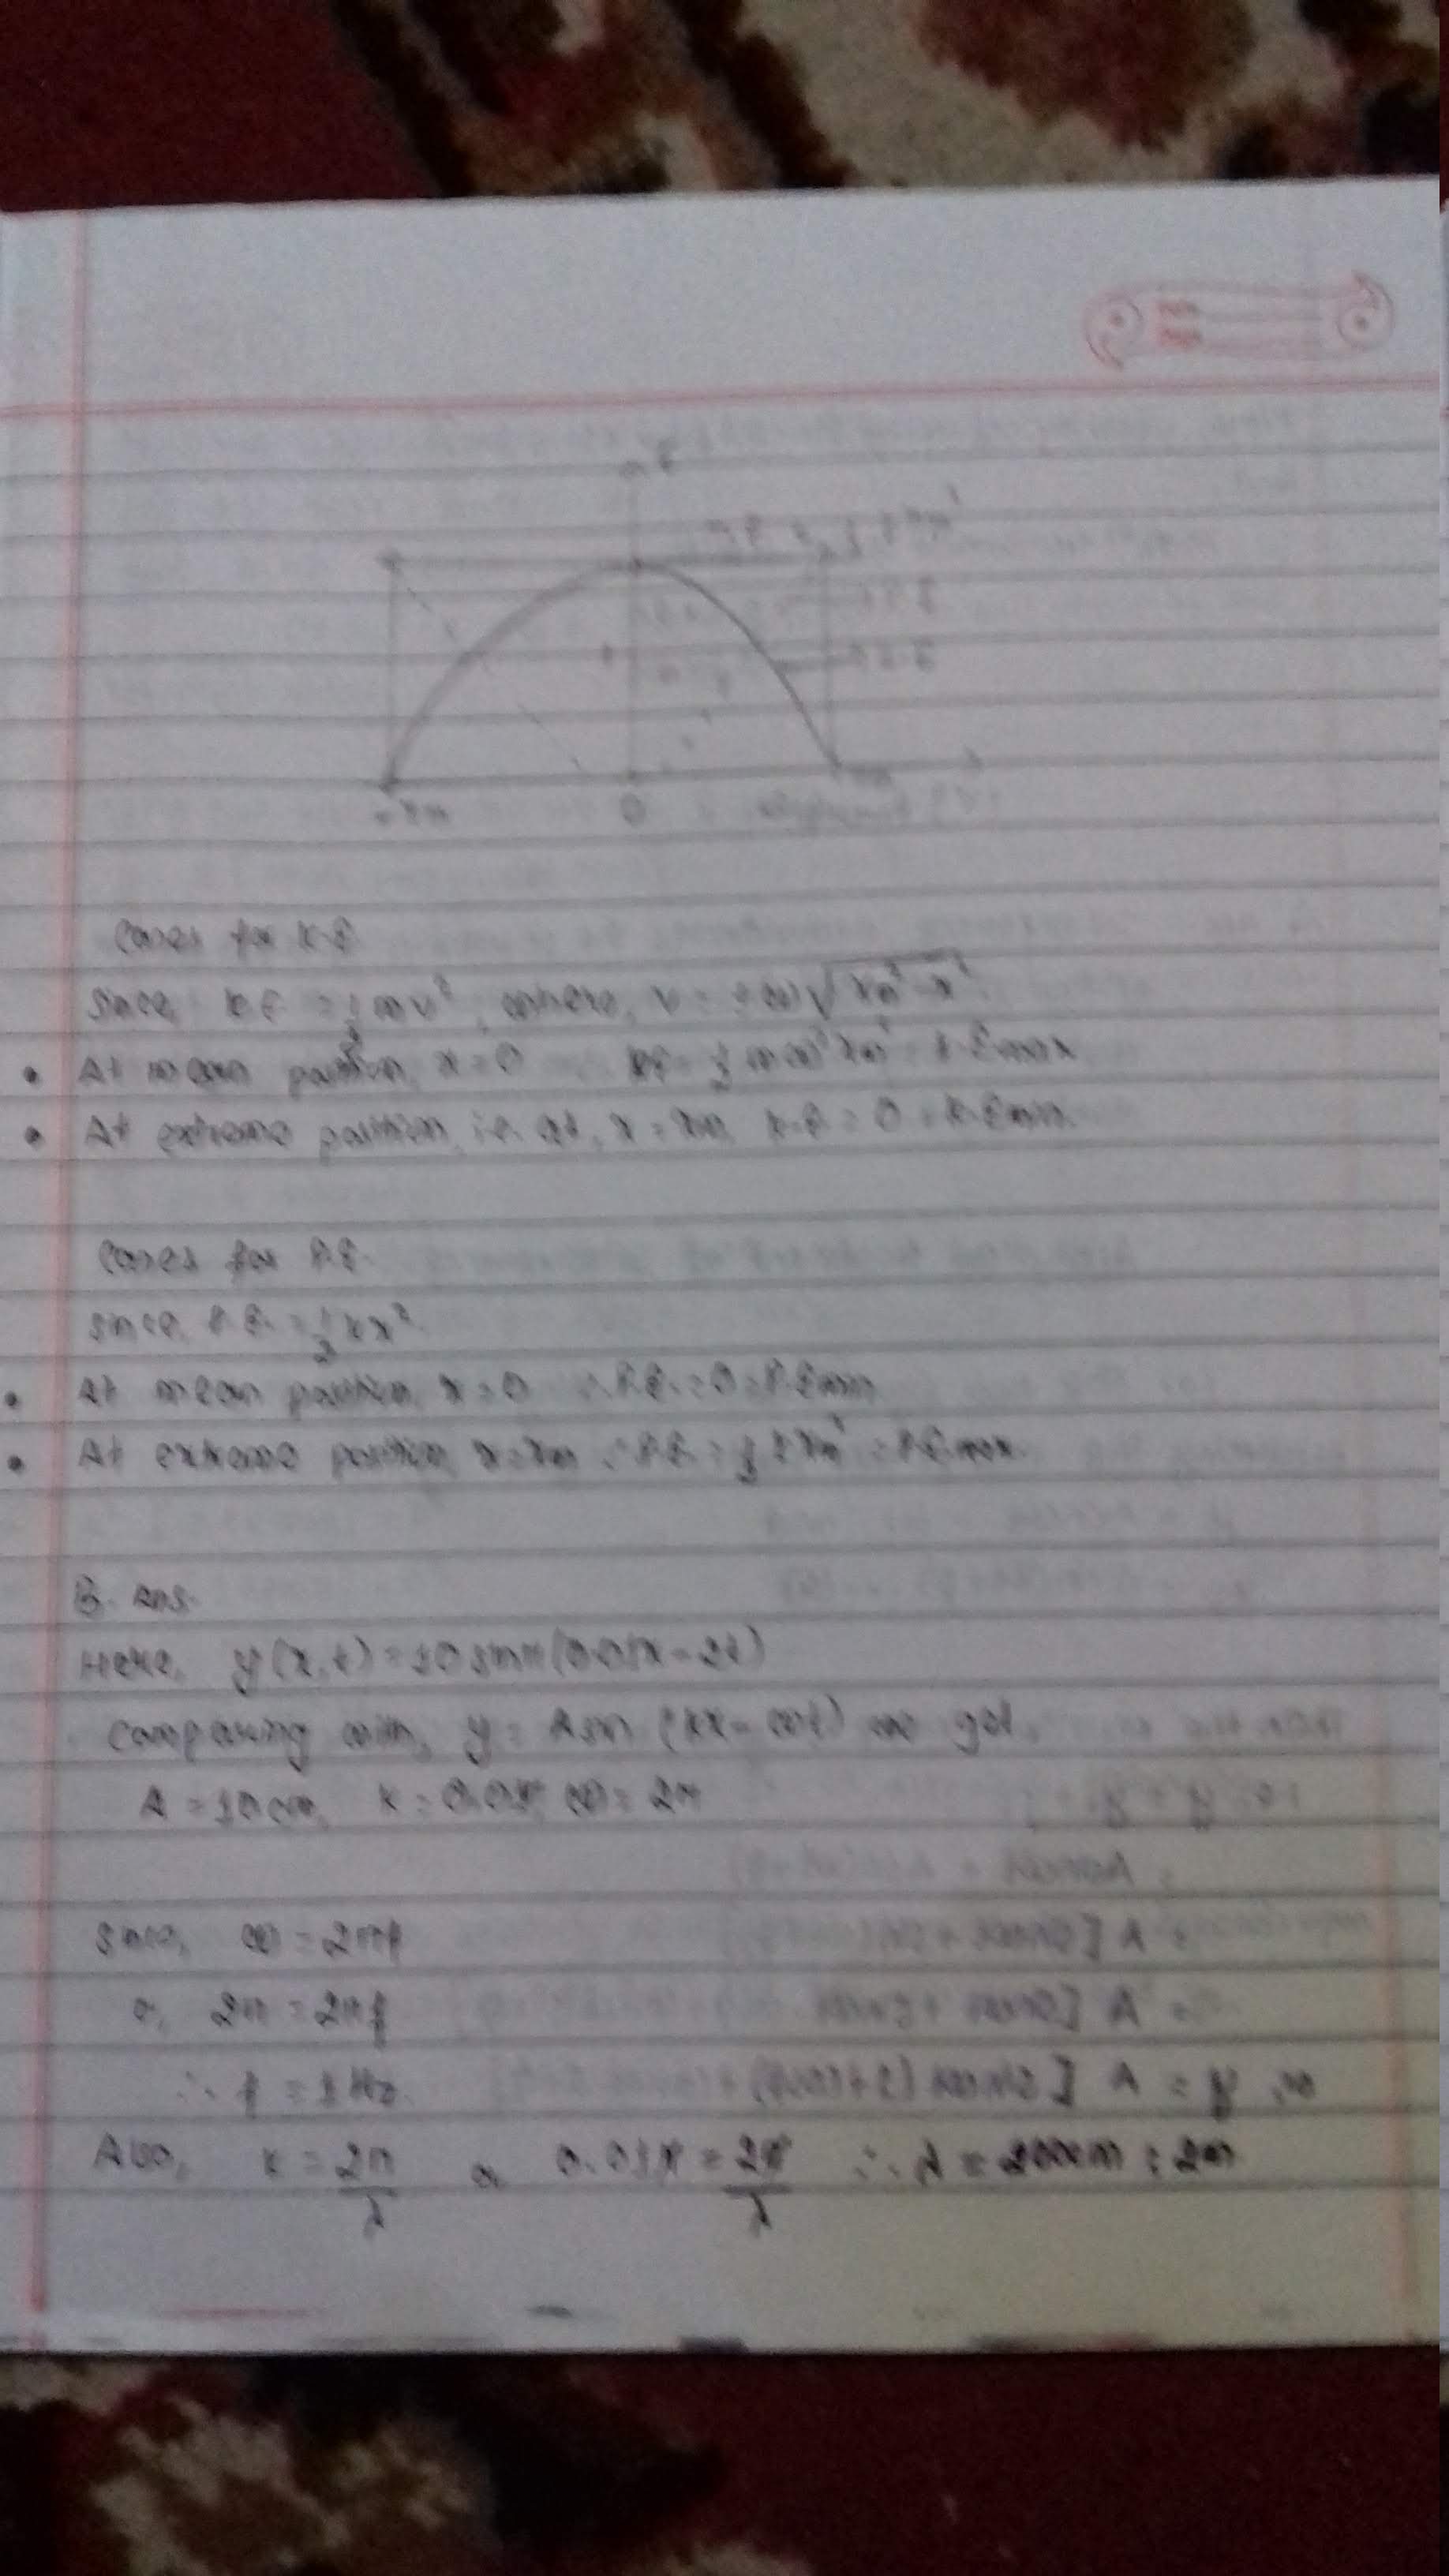 E
T.E = ½ k xm²
P.E
K.E
-xm 0 xm
displacement (x)
Cases for K.E
Since, K.E = ½ mv², where, v = ±ω√xm²-x²
• At mean position, x = 0 K.E = ½ mω²xm² = K.Emax
• At extreme position, i.e. at, x = xm, K.E = 0 = K.Emin.
Cases for P.E.
Since, P.E. = ½ kx²
• At mean position, x = 0 ∴ P.E. = 0 = P.Emin
• At extreme position, x = xm ∴ P.E. = ½ k xm² = P.Emax.
Ans.
Here, y(x,t) = 10 sin π(0.01x - 2t)
Comparing with, y = A sin (kx - ωt) we get,
A = 10cm, k = 0.01π, ω = 2π
Since, ω = 2πf
or, 2π = 2πf
∴ f = 1 Hz.
Also, k = 2π/λ or 0.01π = 2π/λ ∴ λ = 200cm = 2m